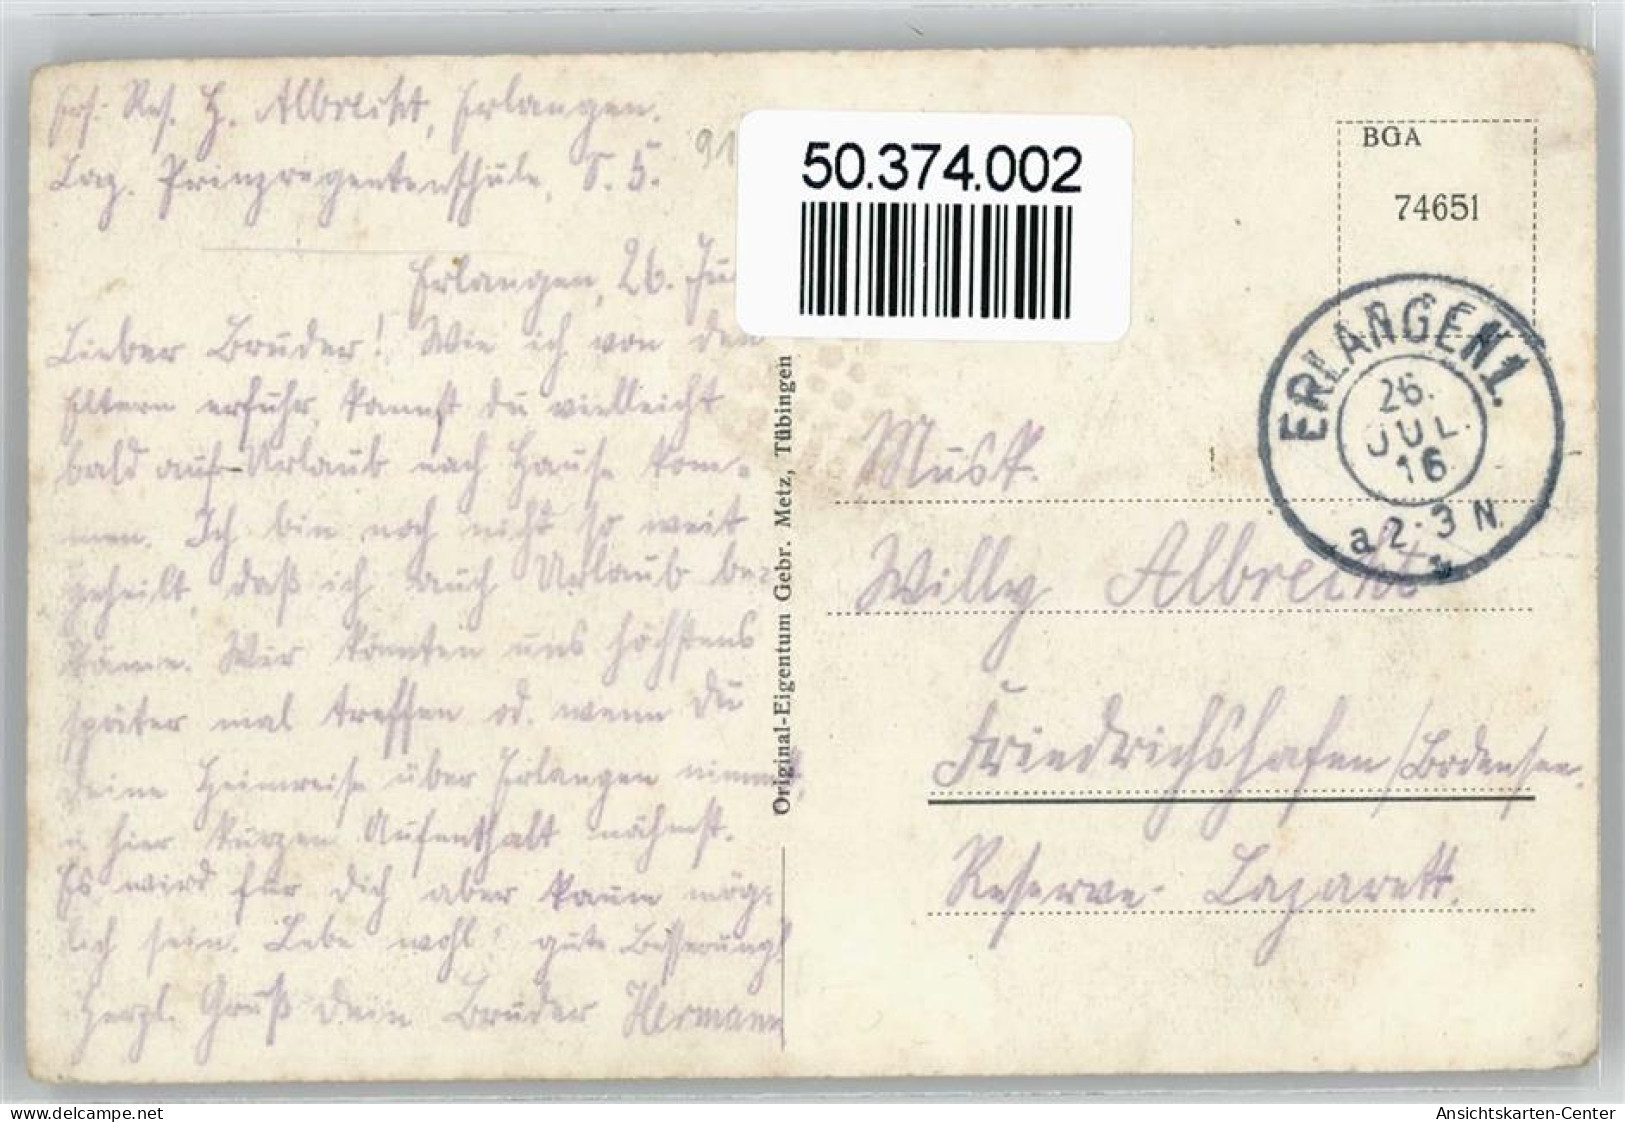 Ers. Res. H. Albrecht, Erlangen.
Laz. Prinzregentenschule, S. 5.
91
50.374.002
BGA
74651
Erlangen, 26. Ju
ERLANGEN 1.
26.
JUL.
16
a 2-3 N.
Lieber Bruder! Wie ich von den
Eltern erfuhr, kannst du vielleicht
bald auf Urlaub nach Hause kom-
men. Ich bin noch nicht so weit
geheilt, daß ich auch Urlaub be-
käme. Wir könnten uns höchstens
später mal treffen od. wenn Du
Deine Heimreise über Erlangen nimmst,
u. hier kurzen Aufenthalt nähmst.
Es wird für dich aber kaum mög-
lich sein. Lebe wohl! gute Besserung!
Herzl. Gruß Dein Bruder Hermann
Original-Eigentum Gebr. Metz, Tübingen
Musk.
Willy Albrecht
Friedrichshafen/Bodensee.
Reserve-Lazarett.
delcampe.net
Ansichtskarten-Center